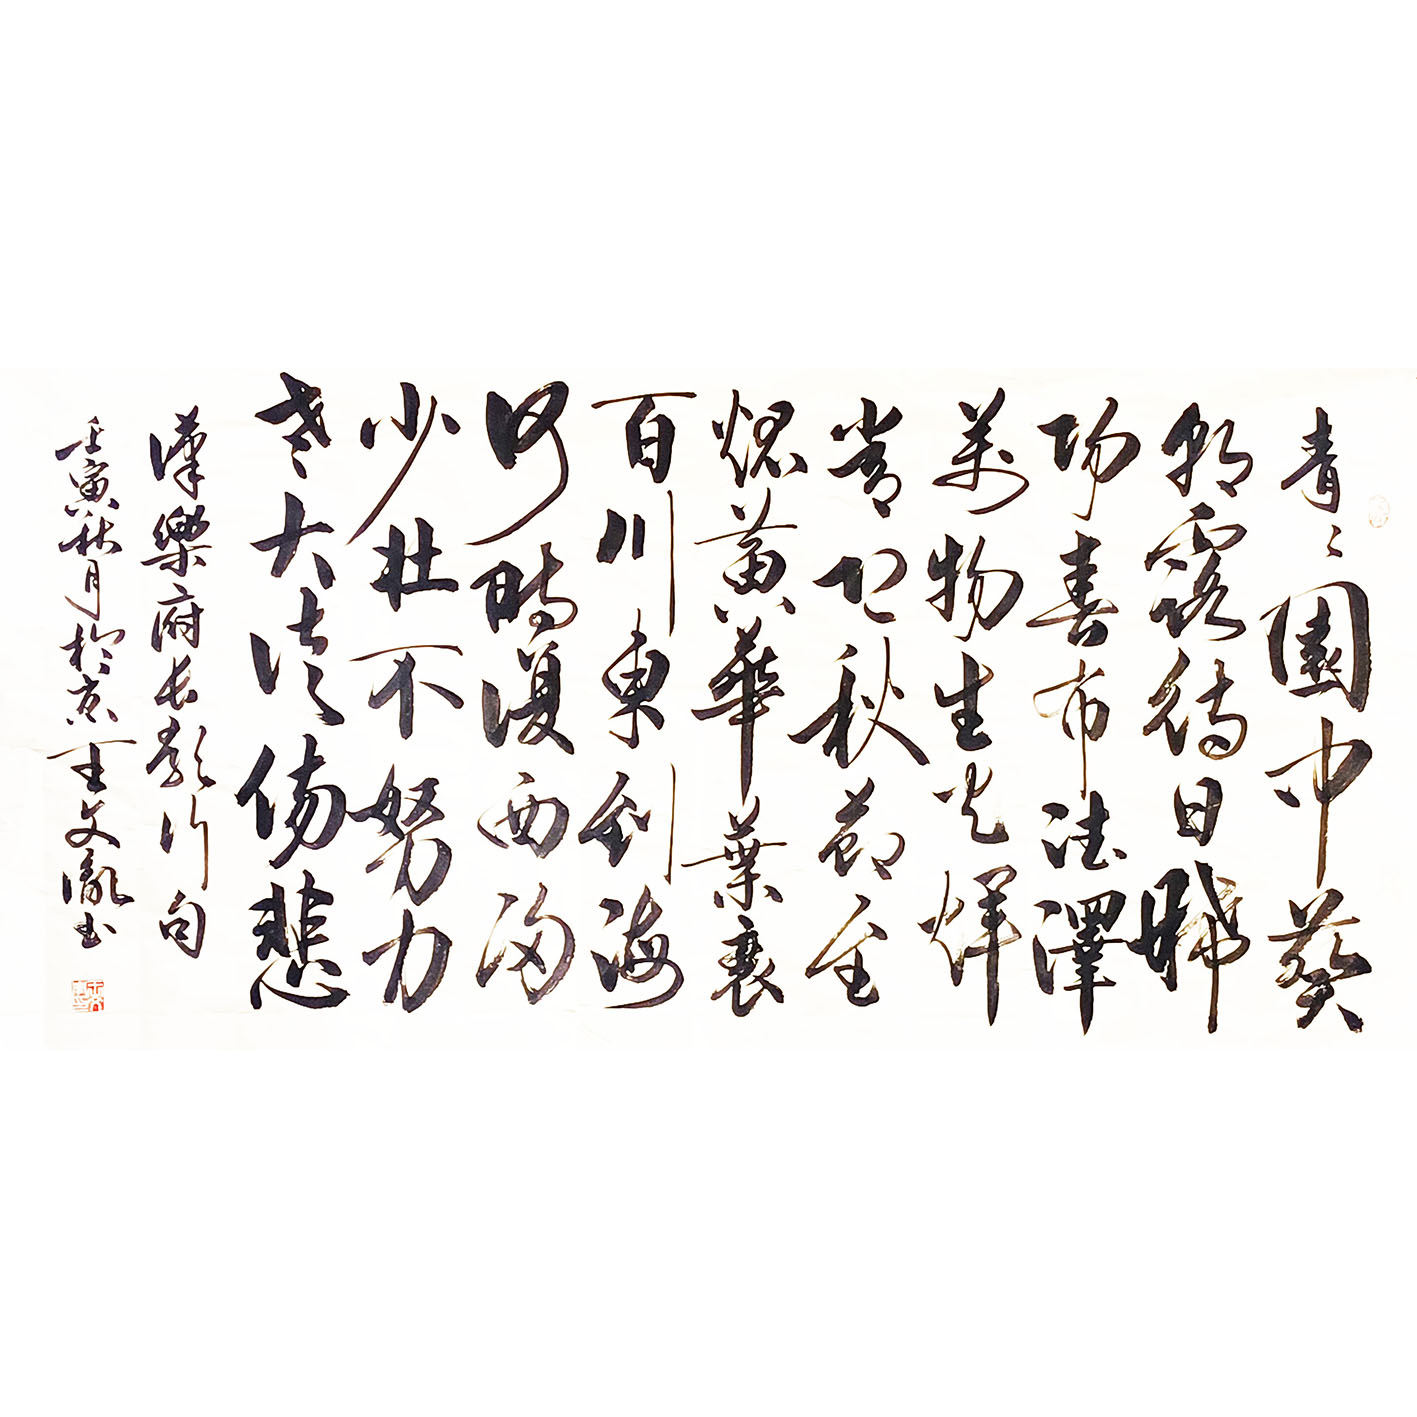 青〻園中葵
朝露待日晞
陽春布德澤
萬物生光煇
常恐秋節至
焜黃華葉衰
百川東到海
何時復西歸
少壯不努力
老大徒傷悲
漢樂府長歌行句
壬寅秋月於京王文胤書